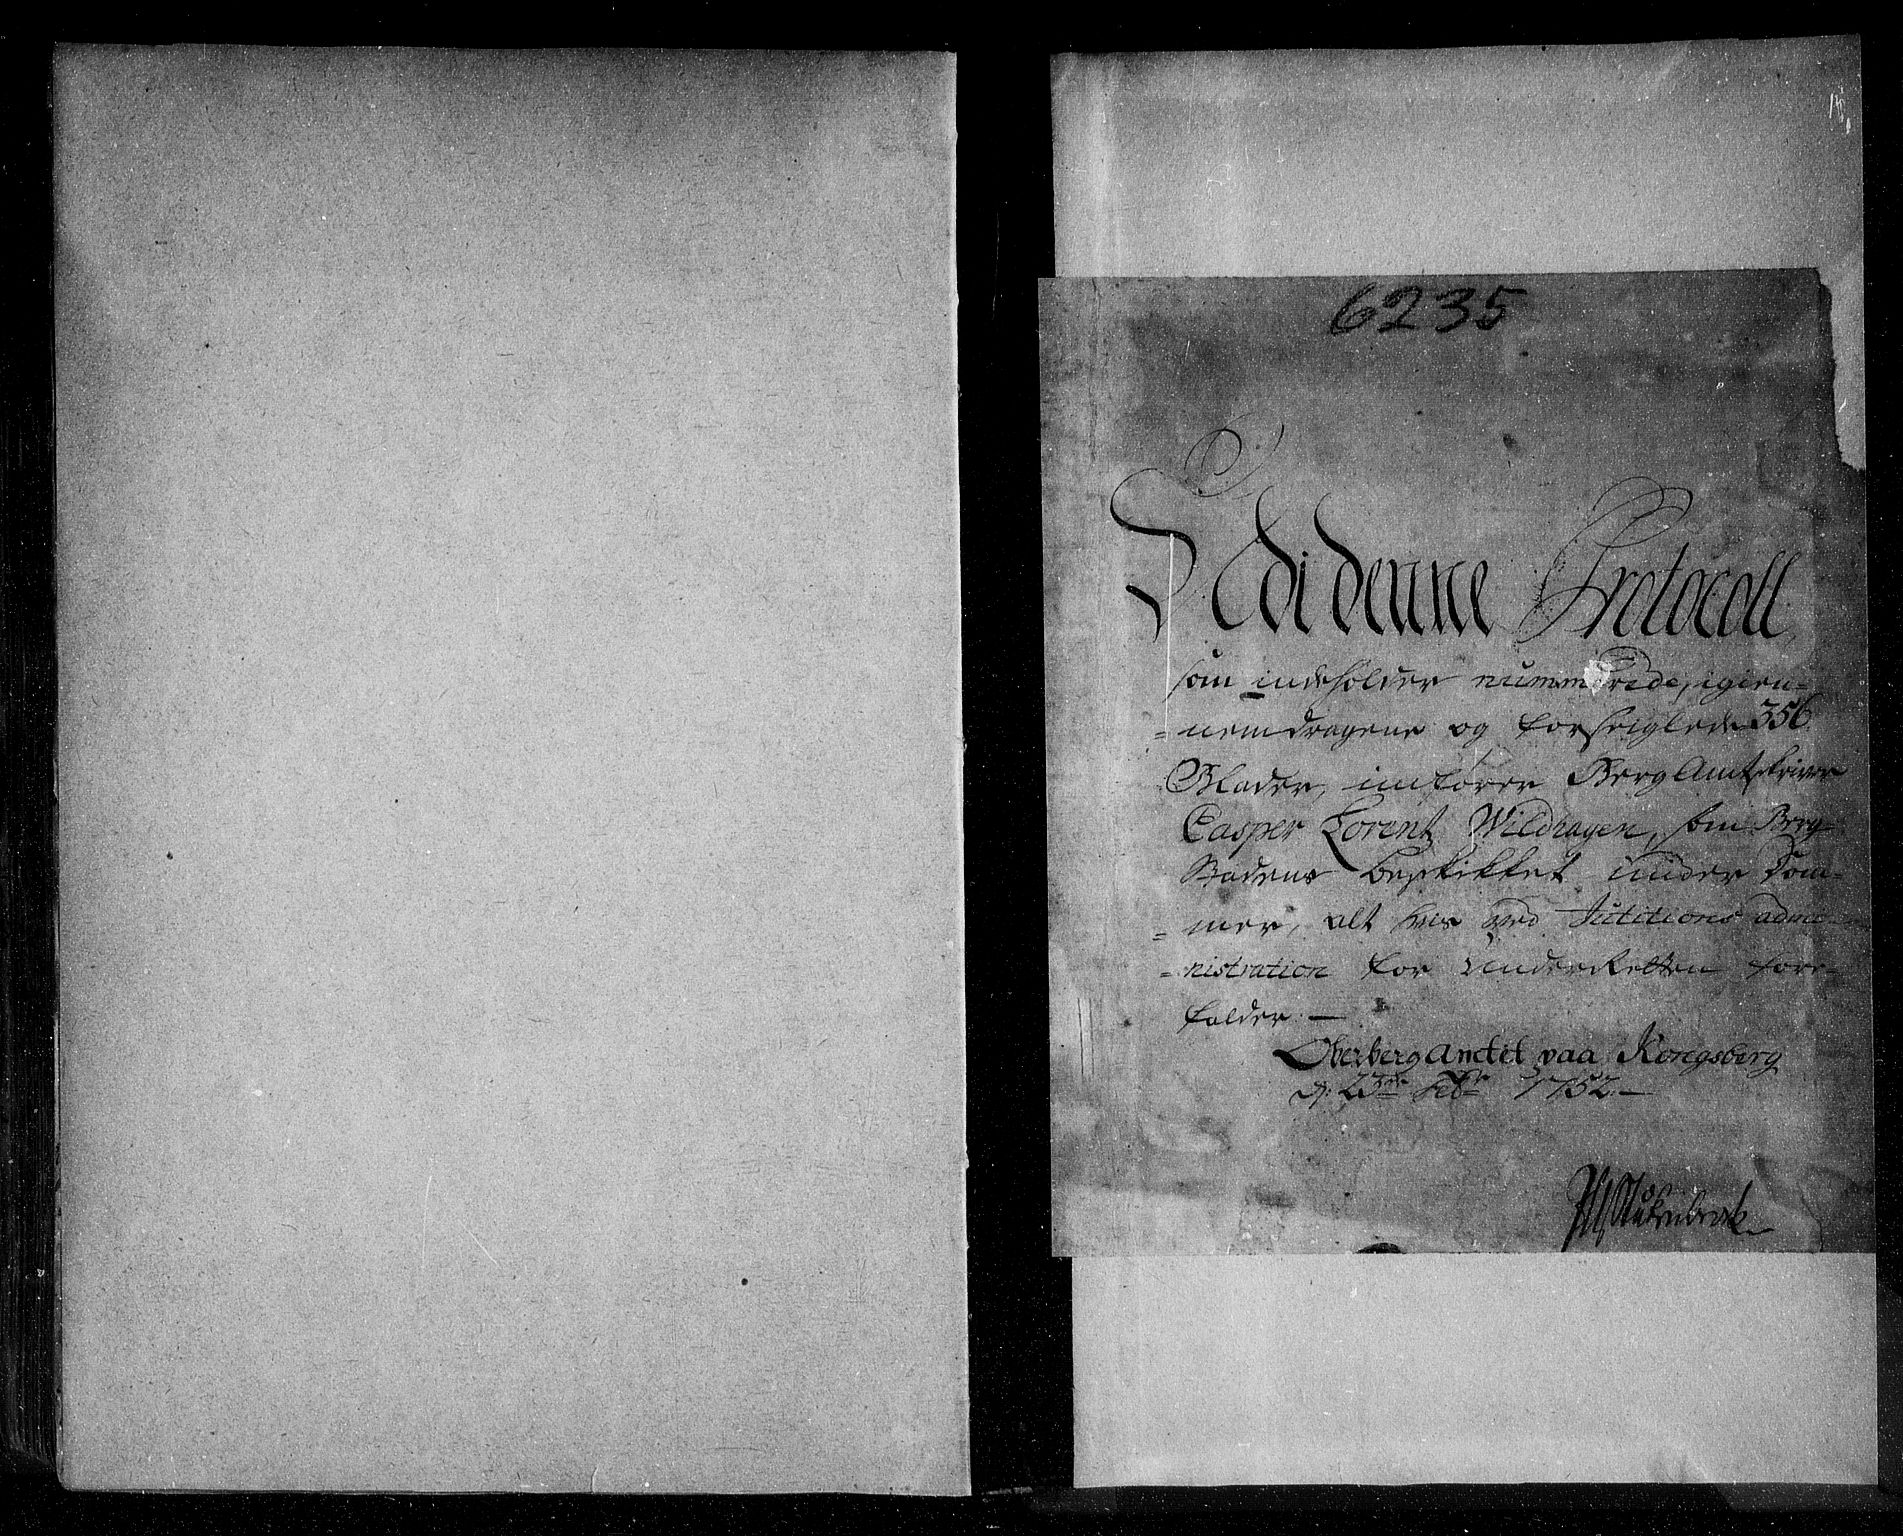 6235
Udi denne Protocoll
som indeholder nummerede, igien=
=nemdragene og forseiglede 356
Blader, indfører Berg Amtskriver
Casper Lorentz Wildhagen, som Berg
Stadens beskikket under Dom=
=mer, alt hvis ved Justitiens admi=
=nistration for Underretten fore=
falder. —
OberbergAmtet paa Kongsberg
d: 23de Febr 1752. —